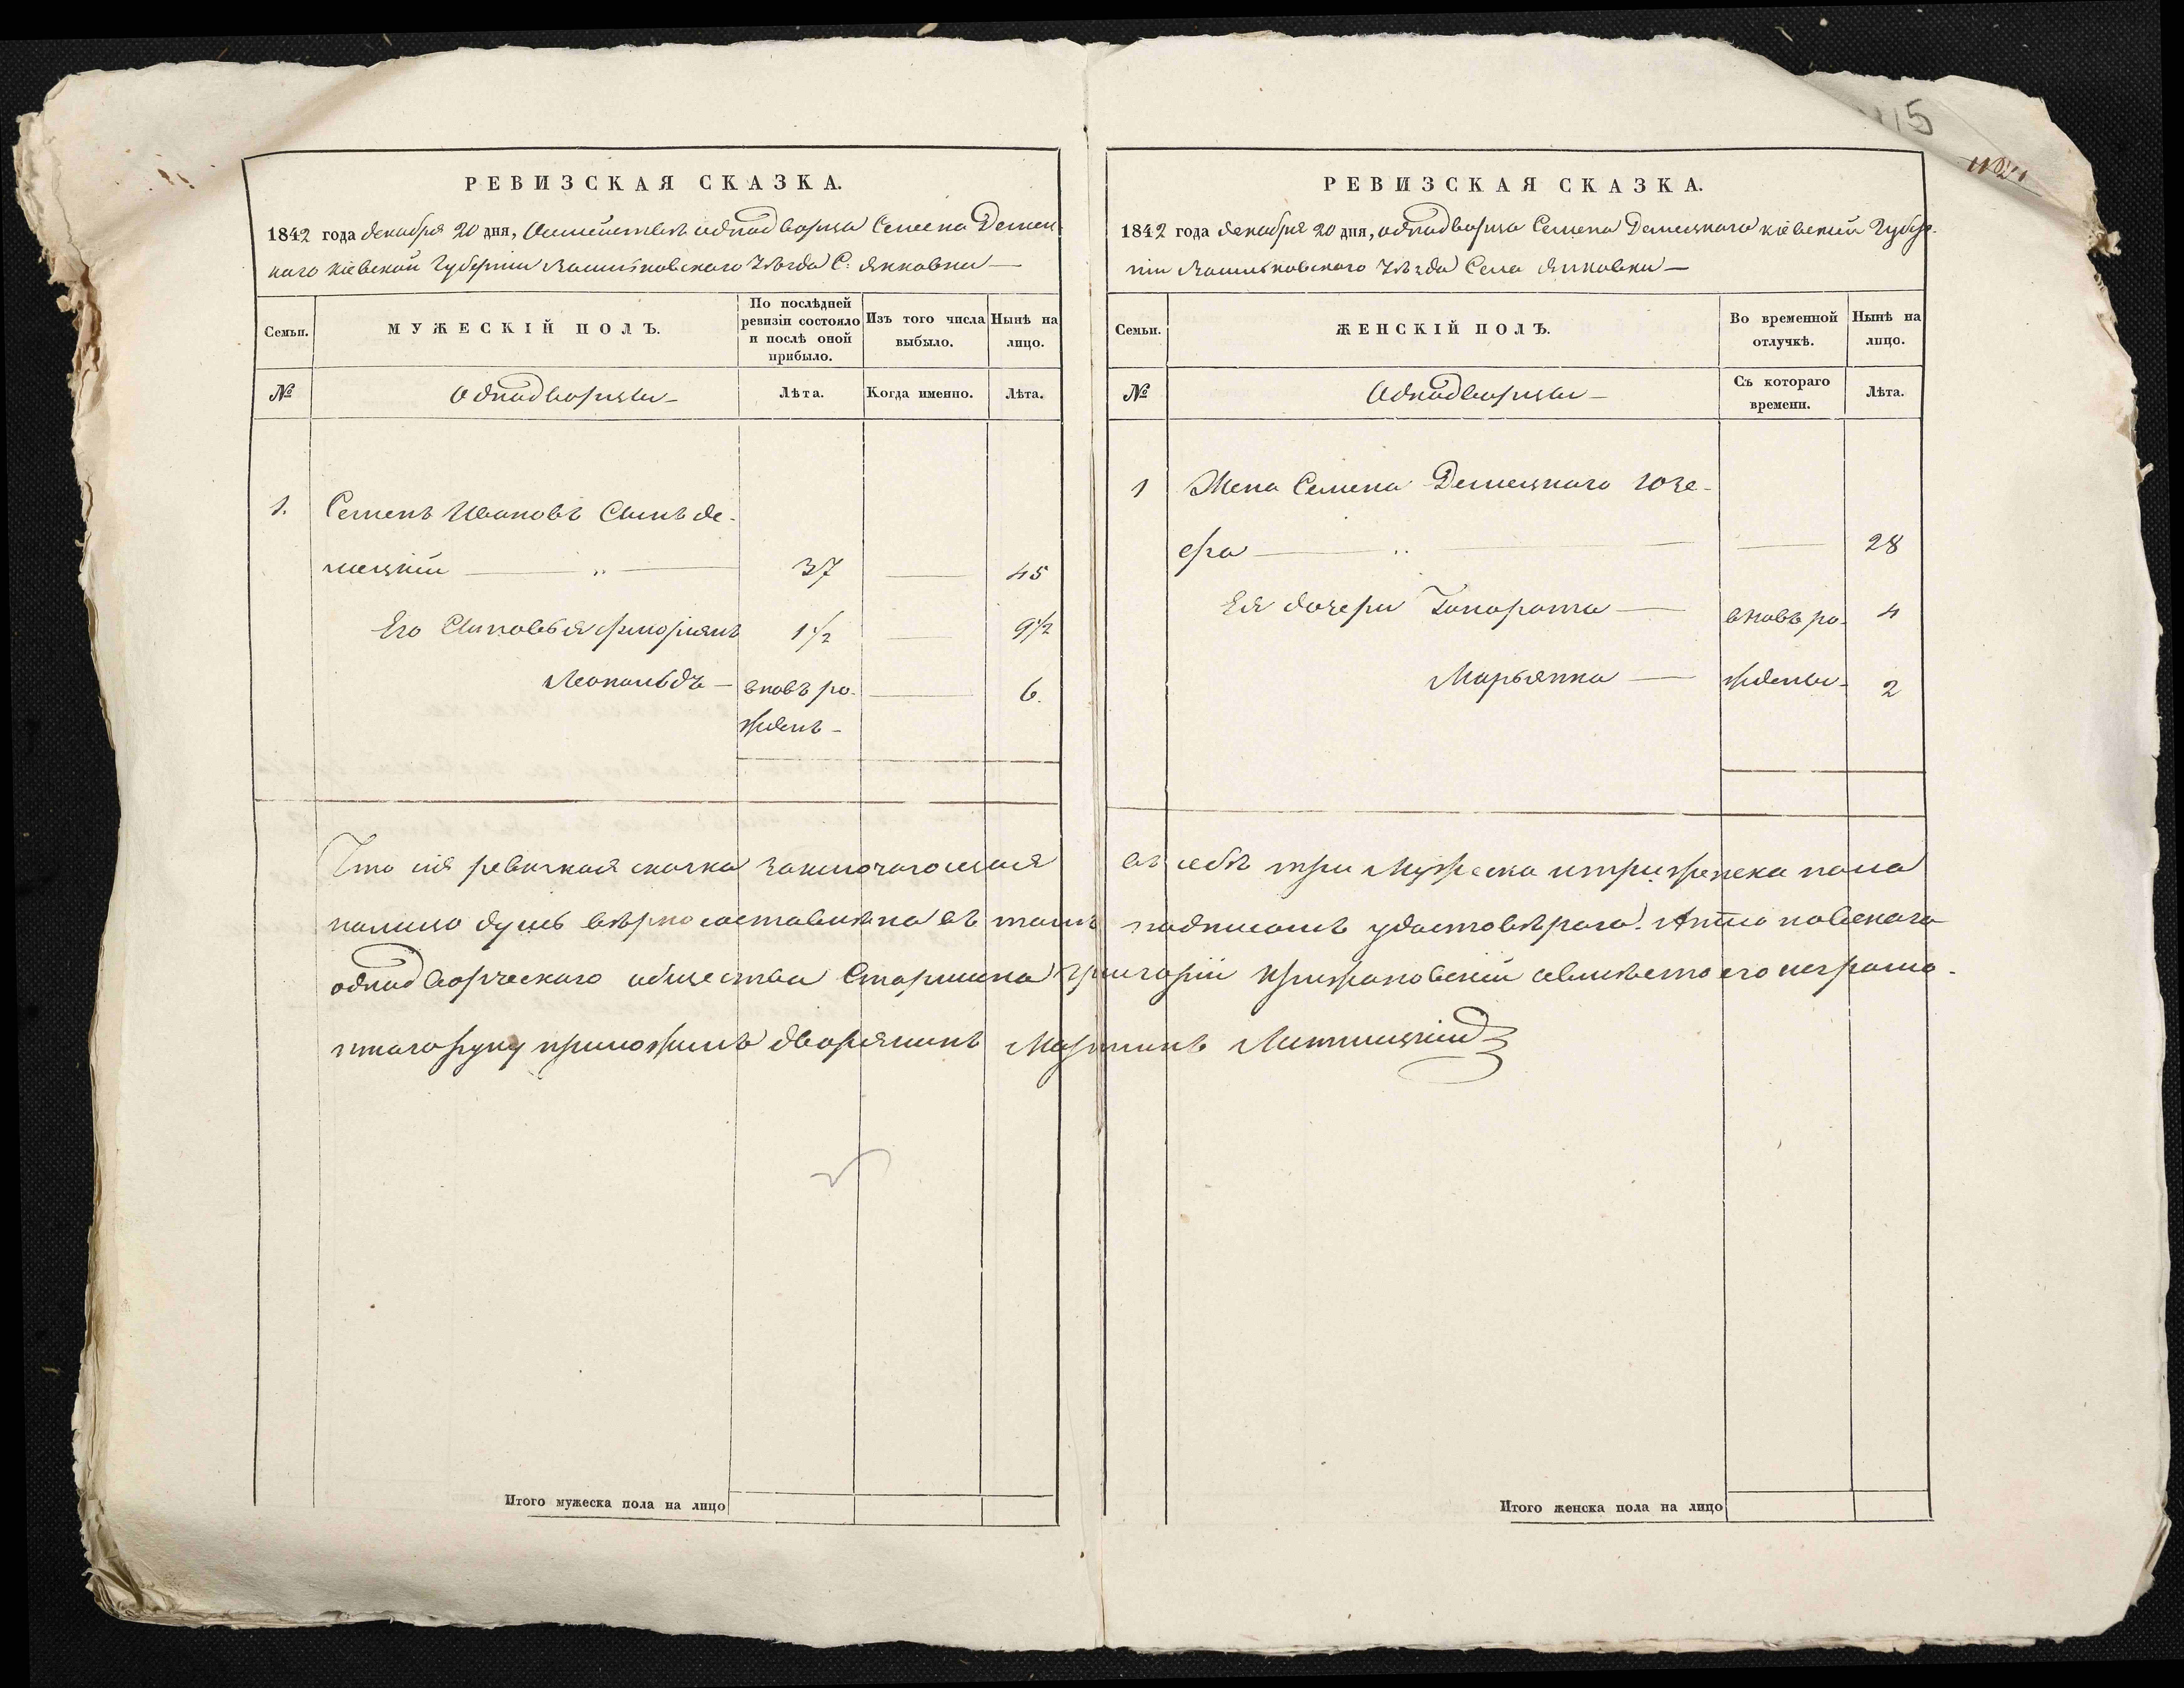 15
РЕВИЗСКАЯ СКАЗКА.
1842 года декабря 20 дня, О семействе однодворца Семена Демец
каго Кіевской Губерніи Васильковского Уѣзда С: Янковки
Семьи.
МУЖЕСКІЙ ПОЛЪ.
По послѣдней ревизіи состояло и послѣ оной прибыло.
Изъ того числа выбыло.
Нынѣ на лицо.
№
Однодворцы
Лѣта.
Когда именно.
Лѣта.
1. Семенъ Ивановъ Сынъ Де-
мецкій 37 45
Его Сыновья Флоріянъ 1 1/2 9 1/2
Леопольдъ вновь ро- 6.
жденъ
Итого мужеска пола на лицо
РЕВИЗСКАЯ СКАЗКА.
1842 года декабря 20 дня, однодворца Семена Демецкаго Кіевской Губер-
ніи Васильковского Уѣзда Села Янковки
Семьи.
ЖЕНСКІЙ ПОЛЪ.
Во временной отлучкѣ.
Нынѣ на лицо.
№
Однодворцы
Съ котораго времени.
Лѣта.
1 Жена Семена Демецкаго Юзе-
фа 28
Ея дочери Гонората вновь ро- 4
Марьянна ждены 2
Что сія ревизкая сказка заключающая въ себѣ три Мужеска и три женска пола
налицо душъ вѣрно составлѣна въ томъ подписомъ удостовѣряю!
однодворческаго общества Старшина Григорій Крижановскій а вместо его неграмо-
тнаго руку приложилъ дворянинъ Мартинъ
Итого женска пола на лицо